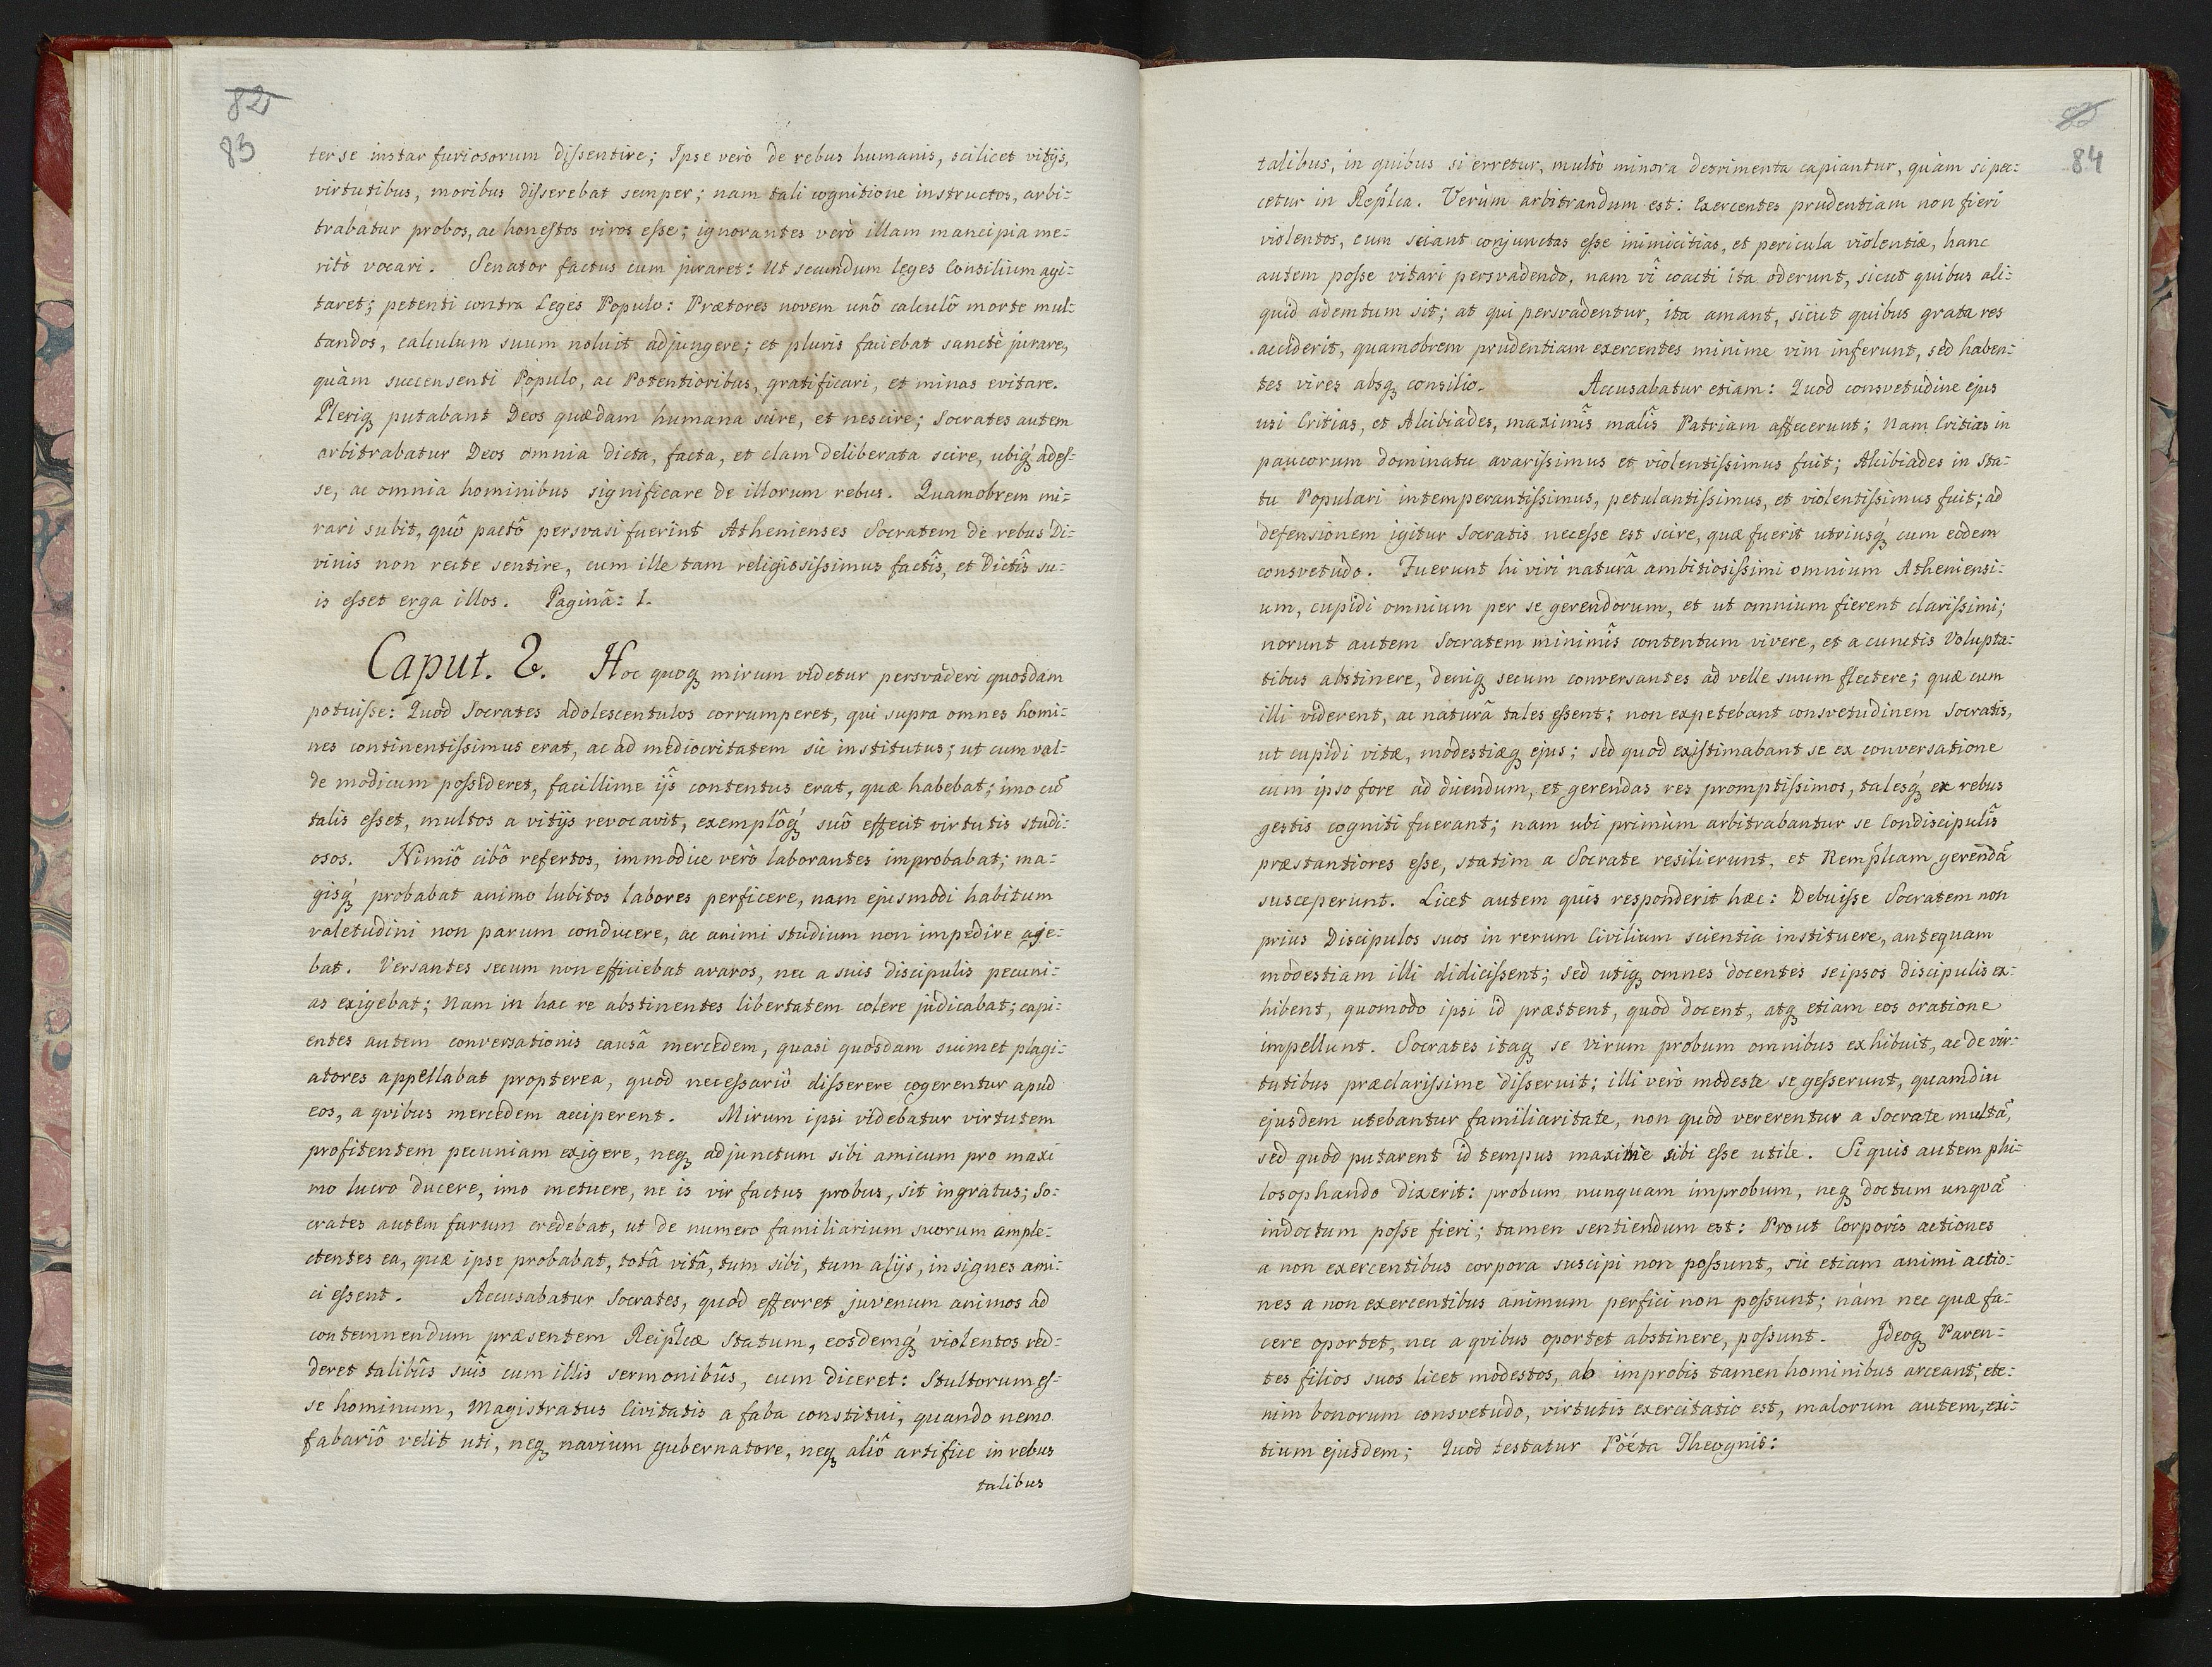 82
83
ter se instar furiosorum dissentire; Ipse verò de rebus humanis, scilicet vitijs,
virtutibus, moribus disserebat semper; nam tali cognitione instructos, arbi-
trabatur probos, ac honestos viros esse; ignorantes verò illam mancipia me-
ritò vocari. Senator factus cum juraret: Ut secundum leges Consilium agi-
taret; petenti contra Leges Populo: Prætores novem unô calculô morte mul-
tandos, calculum suum noluit adjungere; et pluris faciebat sanctè jurare,
quàm succensenti Populo, ac Potentioribus, gratificari, et minas evitare.
Pleriq; putabant Deos quædam humana scire, et nescire; Socrates autem
arbitrabatur Deos omnia dicta, facta, et clam deliberata scire, ubiq; ades-
se, ac omnia hominibus significare de illorum rebus. Quamobrem mi-
rari subit, quô pactô persvasi fuerint Athenienses Socratem de rebus Di-
vinis non recte sentire, cum ille tam religiosissimus factîs, et Dictîs su-
is esset erga illos. Paginâ: 1.
Caput. 2. Hoc quoq; mirum videtur persvaderi quosdam
potuisse: Quod Socrates adolescentulos corrumperet, qui supra omnes homi-
nes continentissimus erat, ac ad mediocritatem sic institutus; ut cum val-
de modicum possideret, facillime ijs contentus erat, quæ habebat; imo cū
talis esset, multos a vitijs revocavit, exemplôq; suô effecit virtutis studi-
osos. Nimiô cibô refertos, immodice verò laborantes improbabat; ma-
gisq; probabat animo lubitos labores perficere, nam ejusmodi habitum
valetudini non parum conducere, ac animi studium non impedire aje-
bat. Versantes secum non efficiebat avaros, nec a suis discipulis pecuni-
as exigebat; Nam in hac re abstinentes libertatem colere judicabat; capi-
entes autem conversationis causâ mercedem, quasi quosdam suimet plagi-
atores appellabat propterea, quod necessariô disserere cogerentur apud
eos, a qvibus mercedem acciperent. Mirum ipsi videbatur virtutem
profitentem pecuniam exigere, neq; adjunctum sibi amicum pro maxi
mo lucro ducere, imo metuere, ne is vir factus probus, sit ingratus; So-
crates autem furum credebat, ut de numero familiarium suorum ample-
ctentes ea, quæ ipse probabat, totâ vitâ, tum sibi, tum alijs, insignes ami-
ci essent. Accusabatur Socrates, quod efferret juvenum animos ad
contemnendum præsentem Reiplcæ Statum, eosdemq; violentos red-
deret talibûs suîs cum illis sermonibûs, cum diceret: Stultorum es-
se hominum, Magistratus Civitatis a faba constitui, quando nemo
fabariô velit uti, neq; navium gubernatore, neq; aliô artifice in rebus
talibus
84
talibus, in quibus si erretur, multò minora detrimenta capiantur, quàm si pec-
cetur in Replca. Verùm arbitrandum est: Exercentes prudentiam non fieri
violentos, cum sciant conjunctas esse inimicitias, et pericula violentiæ, hanc
autem posse vitari persvadendo, nam vî coacti ita oderunt, sicut quibus ali-
quid ademtum sit; at qui persvadentur, ita amant, sicut quibus grata res
acciderit, quamobrem prudentiam exercentes minime vim inferunt, sed haben-
tes vires absq; consilio. Accusabatur etiam: Quod consvetudine ejus
usi Critias, et Alcibiades, maximîs malîs Patriam affecerunt; Nam Critias in
paucorum dominatu avarissimus et violentissimus fuit; Alcibiades in sta-
tu Populari intemperantissimus, petulantissimus, et violentissimus fuit; ad
defensionem igitur Socratis necesse est scire, quæ fuerit utriusq; cum eodem
consvetudo. Fuerunt hi viri naturâ ambitiosissimi omnium Atheniensi-
um, cupidi omnium per se gerendorum, et ut omnium fierent clarissimi;
norunt autem Socratem minimîs contentum vivere, et a cunctis volupta-
tibus abstinere, deniq; secum conversantes ad velle suum flectere; quæ cum
illi viderent, ac naturâ tales essent; non expetebant consvetudinem Socratis,
ut cupidi vitæ, modestiæq; ejus; sed quod existimabant se ex conversatione
cum ipso fore ad dicendum, et gerendas res promptissimos, talesq; ex rebus
gestis cogniti fuerant; nam ubi primùm arbitrabantur se Condiscipulîs
præstantiores esse, statim a Socrate resilierunt, et Remplcam gerendā
susceperunt. Licet autem quis responderit hæc: Debuisse Socratem non
prius Discipulos suos in rerum Civilium scientia instituere, antequam
modestiam illi didicissent; sed utiq; omnes docentes seipsos discipulis ex-
hibent, quomodo ipsi id præstent, quod docent, atq; etiam eos oratione
impellunt. Socrates itaq; se virum probum omnibus exhibuit, ac de vir-
tutibus præclarissime disseruit; illi verò modeste se gesserunt, quamdiu
ejusdem utebantur familiaritate, non quòd vererentur a Socrate multā,
sed quòd putarent id tempus maxime sibi esse utile. Si quis autem phi-
losophando dixerit: probum nunquam improbum, neq; doctum unqvā
indoctum posse fieri; tamen sentiendum est: Prout Corporis actiones
a non exercentibus corpora suscipi non possunt, sic etiam animi actio-
nes a non exercentibus animum perfici non possunt; nàm nec quæ fa-
cere oportet, nec a qvibus oportet abstinere, possunt. Ideoq; Paren-
tes filios suos licet modestos, ab improbis tamen hominibus arceant; ete-
nim bonorum consvetudo, virtutis exercitatio est, malorum autem, exi-
tium ejusdem; Quod testatur Pöéta Theognis: